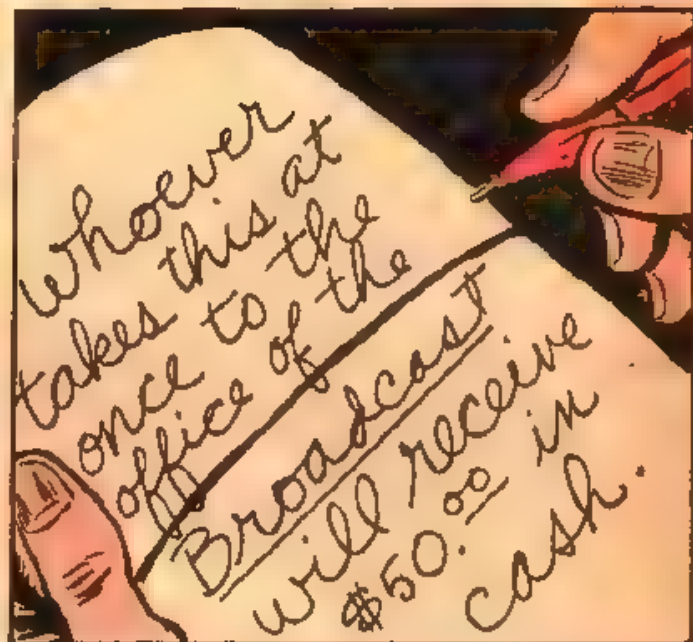 Whoever
takes this at
once to the
office of the
Broadcast
will receive
$50.00 in
cash.